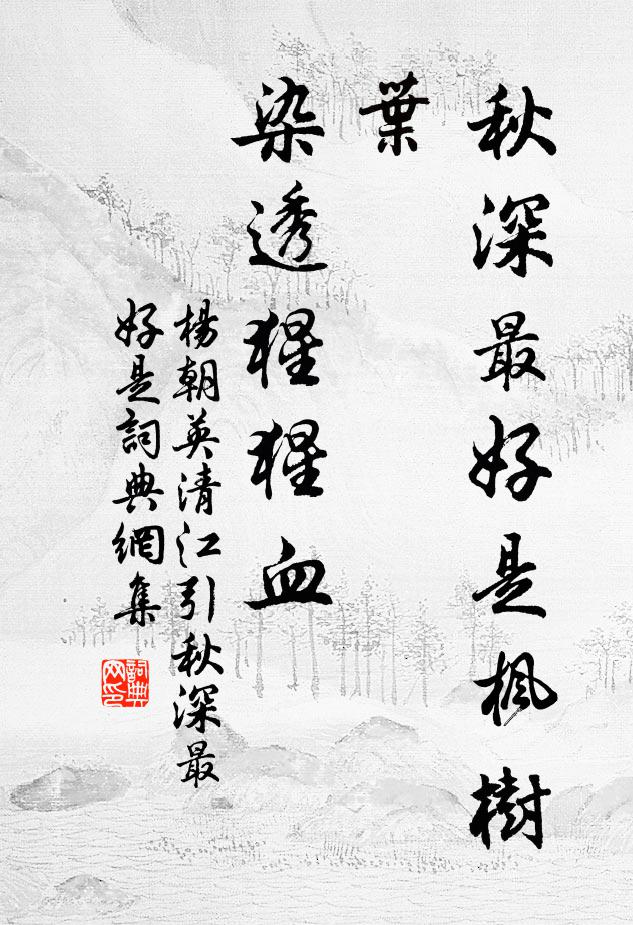 秋深最好是楓樹
葉
染透猩猩血
楊朝英清江引秋深最
好是詞典網集
詞典
网印